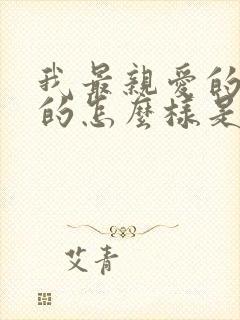 我最親愛的
的怎麼樣是
艾青